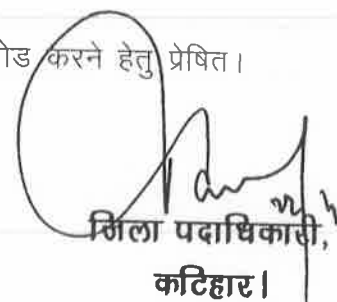 ोड करने हेतु प्रेषित।
जिला पदाधिकारी,
कटिहार।